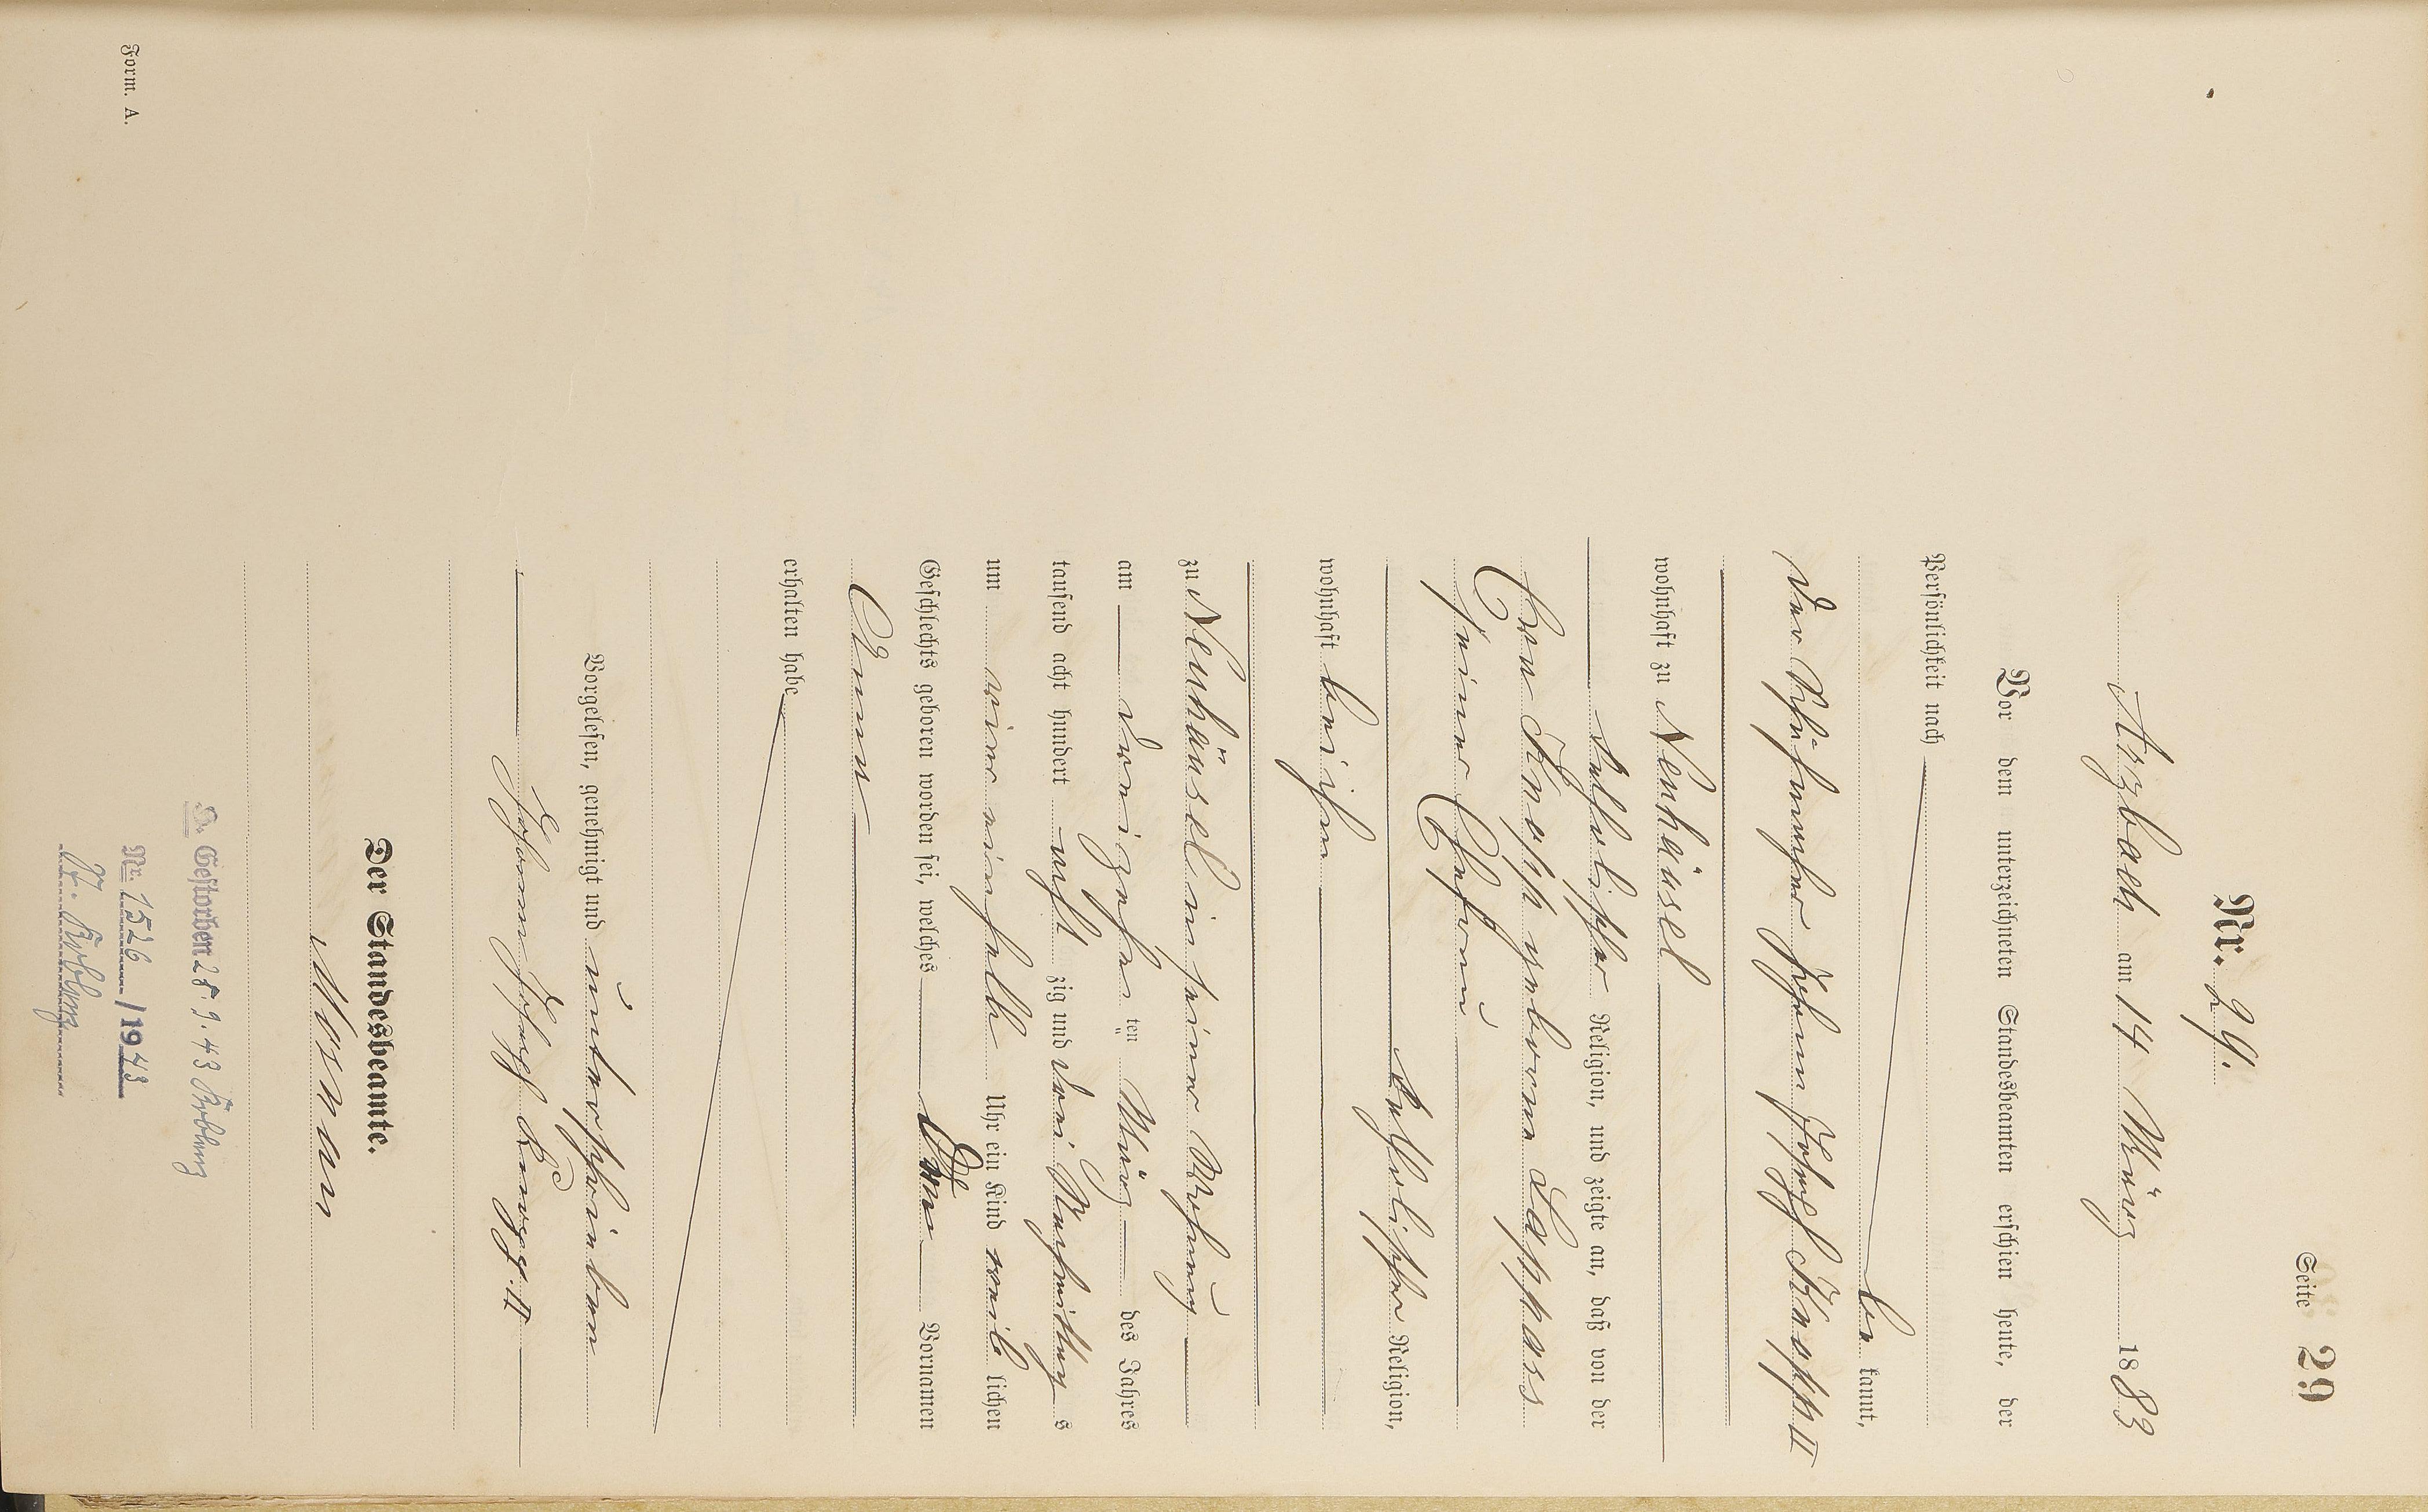 Seite 29
Nr. 29.
Arzbach am 14 März 1883
Vor dem unterzeichneten Standesbeamten erschien heute, der
Persönlichkeit nach
be kannt,
der Johann Joseph Knopp II
wohnhaft zu Neuhäusel
katholischer Religion, und zeigte an, daß von der
Eva Knopp geborene Lappas
seiner Ehefrau
katholischer Religion,
wohnhaft bei ihm
zu Neuhäusel in seiner Wohnung
am dreizehn ten März des Jahres
tausend acht hundert acht zig und drei Nachmittag s
um vier einhalb Uhr ein Kind weib lichen
Geschlechts geboren worden sei, welches den Vornamen
Anna
erhalten habe
Vorgelesen, genehmigt und unterschrieben
Johann Joseph Knopp. II
Der Standesbeamte.
Gestorben 28.9.43 Koblenz
Nr. 1526 /1943
Koblenz
Form. A.